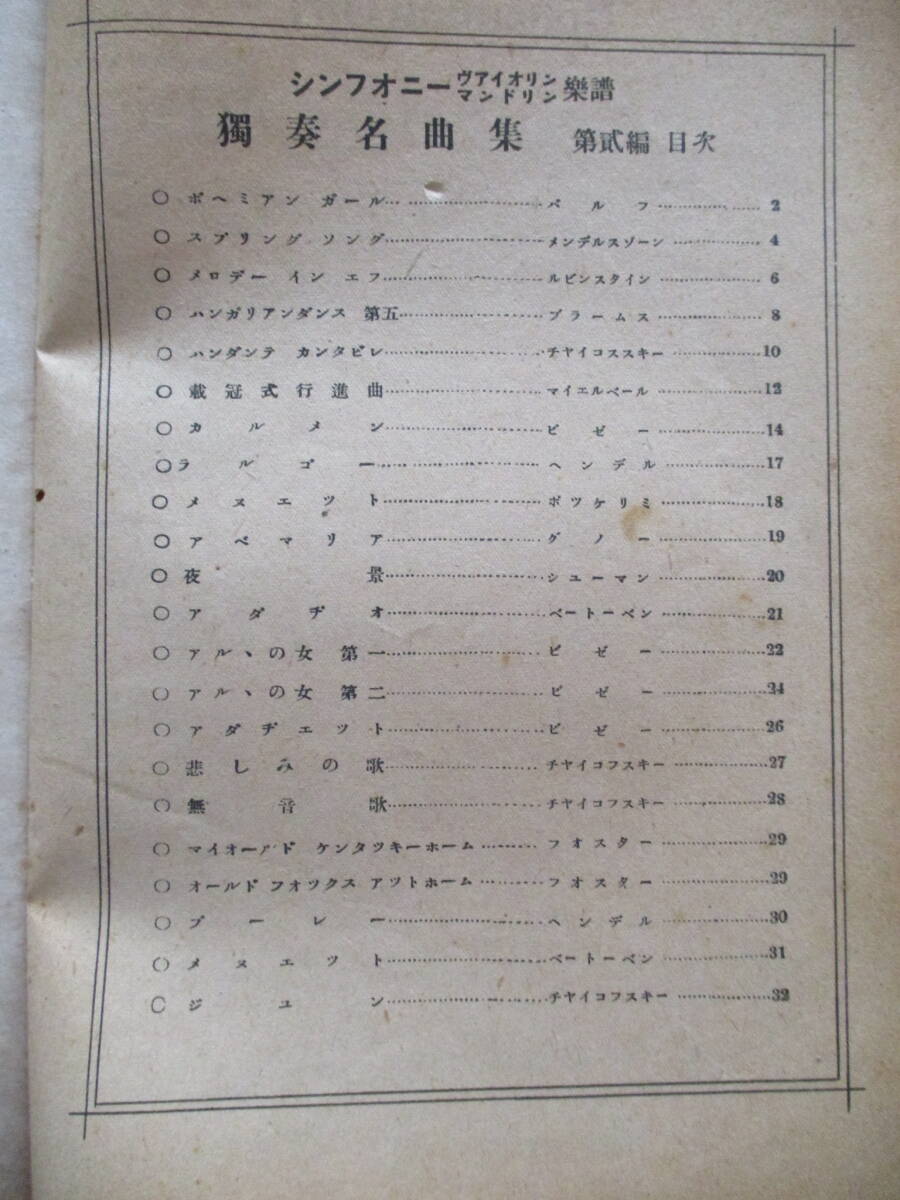 シンフオニー ヴアイオリン マンドリン 樂譜
獨奏名曲集 第貳編 目次
○ ボヘミアン ガール………バルフ………2
○ スプリング ソング………メンデルスゾーン………4
○ メロデー イン エフ………ルビンスタイン………6
○ ハンガリアンダンス 第五………ブラームス………8
○ ハンダンテ カンタビレ………チヤイコススキー………10
○ 戴冠式行進曲………マイエルベール………12
○ カルメン………ビゼー………14
○ ラルゴー………ヘンデル………17
○ メヌエツト………ボツケリミ………18
○ アベマリア………グノー………19
○ 夜景………シユーマン………20
○ アダヂオ………ベートーベン………21
○ アルヽの女 第一………ビゼー………22
○ アルヽの女 第二………ビゼー………24
○ アダヂエツト………ビゼー………26
○ 悲しみの歌………チヤイコフスキー………27
○ 無音歌………チヤイコフスキー………28
○ マイオールド ケンタツキーホーム………フオスター………29
○ オールド フオツクス アツトホーム………フオスター………29
○ ブーレー………ヘンデル………30
○ メヌエツト………ベートーベン………31
○ ジユン………チヤイコフスキー………32